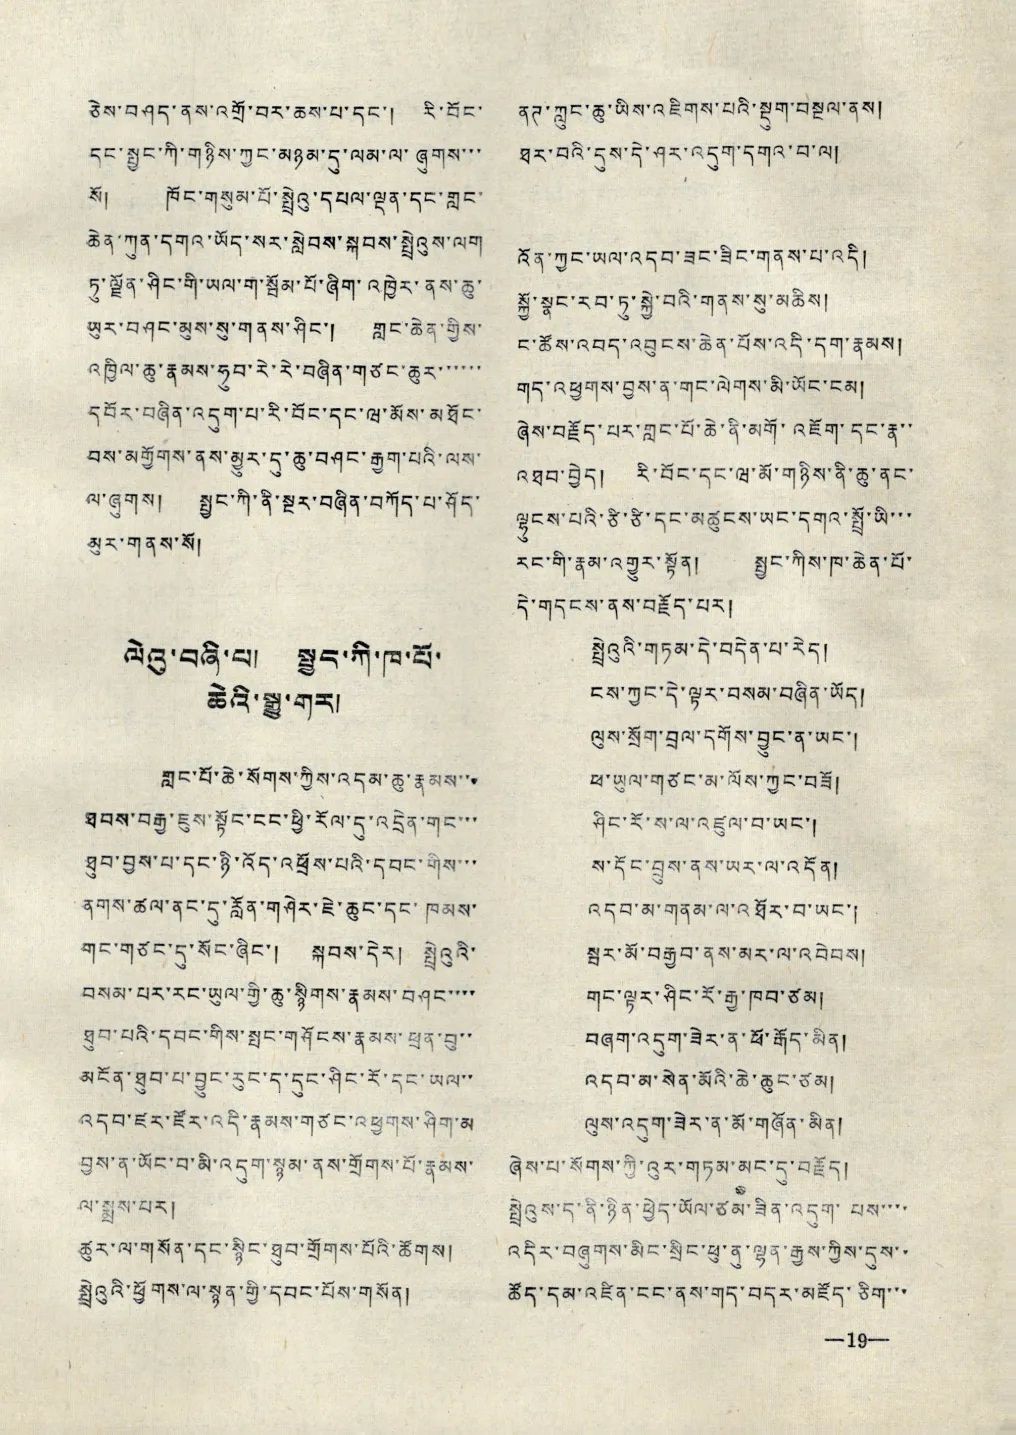 ཅེས་བཤད་ནས་འགྲོ་བར་ཆས་པ་དང་། རི་བོང་
དང་སྤྱང་ཀི་གཉིས་ཀྱང་མཉམ་དུ་ལམ་ལ་ཞུགས་···
སོ། ཁོང་གསུམ་པོ་སྤྲེའུ་དཔལ་ལྡན་དང་གླང་
ཆེན་ཀུན་དགའ་ཡོད་སར་སླེབས་སྐབས་སྤྲེའུས་ལག
ཏུ་ལྗོན་ཤིང་གི་ཡལ་ག་སྦོམ་པོ་ཞིག་འཁྱེར་ནས་ཆུ་
ཡུར་བཤང་མུས་སུ་གནས་ཤིང་། གླང་ཆེན་གྱིས་
འཁྱིལ་ཆུ་རྣམས་ཧུབ་རེ་རེ་བཞིན་གཙང་ཆུར་······
དབོར་བཞིན་འདུག་པ་རི་བོང་དང་ཝ་མོས་མཐོང་
བས་མགྱོགས་ནས་མྱུར་དུ་ཆུ་བཤང་རྒྱག་པའི་ལས་
ལ་ཞུགས། སྤྱང་ཀི་ནི་སྔར་བཞིན་བཀོད་པ་ཤོད་
མུར་གནས་སོ།
ལེའུ་བཞི་པ། སྤྱང་ཀི་ཁ་པོ་
ཆེའི་སྒྱུ་གར།
གླང་པོ་ཆེ་སོགས་ཀྱིས་འདམ་ཆུ་རྣམས་···
ཐབས་བརྒྱ་ཇུས་སྟོང་ངང་ཕྱི་རོལ་དུ་འདྲེན་གང་···
ཐུབ་བྱས་པ་དང་ཉི་འོད་འཕྲོས་པའི་དབང་གིས་···
ནགས་ཚལ་ནང་དུ་རློན་གཤེར་ཇེ་ཆུང་དང་ཁམས་
གང་གཙང་དུ་སོང་ཞིང་། སྐབས་དེར། སྤྲེའུའི་
བསམ་པར་རང་ཡུལ་གྱི་ཆུ་སྙིགས་རྣམས་བཤང་····
ཐུབ་པའི་དབང་གིས་སྤང་གཤོངས་རྣམས་ཕྲན་བུ་··
མངོན་ཐུབ་པ་བྱུང་རུང་ད་དུང་ཤིང་རོ་དང་ཡལ་··
འདབ་ཇར་ཇོར་འདི་རྣམས་གཙང་འཕྱགས་ཤིག་མ
བྱས་ན་ཡོང་བ་མི་འདུག་སྙམ་ནས་གྲོགས་པོ་རྣམས་
ལ་སྨྲས་པར།
ཚུར་ལ་གསོན་དང་སྙིང་ཐུབ་གྲོགས་པོའི་ཚོགས།
སྤྲེའུའི་ཕྱོགས་ལ་སྙན་གྱི་དབང་པོས་གསོན།
ནཊ་ཀླུང་ཆུ་ཡིས་འཇིགས་པའི་སྡུག་བསྔལ་ནས།
ཐར་བའི་དུས་དེ་ཤར་འདུག་དགའ་བ་ལ།
འོན་ཀྱང་ཡལ་འདབ་ཟང་ཟིང་གནས་པ་འདི།
སྐྱོ་སྣང་རབ་ཏུ་སྐྱེ་བའི་གནས་སུ་མཆིས།
ང་ཚོས་འབད་འབུངས་ཆེན་པོས་འདི་དག་རྣམས།
གད་འཕྱགས་བྱས་ན་གང་ལེགས་མི་ཡོང་ངམ།
ཞེས་བརྗོད་པར་གླང་པོ་ཆེ་ནི་མགོ་འཇོག་དང་རྣ་··
འཐབ་བྱེད། རི་བོང་དང་ཝ་མོ་གཉིས་ནི་ཆུ་ནང་
ལྷུངས་པའི་ཙི་ཙི་དང་མཚུངས་ཡང་དགའ་སྤྲོ་ཡི་···
རང་གི་རྣམ་འགྱུར་སྟོན། སྤྱང་ཀིས་ཁ་ཆེན་པོ་
དེ་གདངས་ནས་བརྗོད་པར།
སྤྲེའུའི་གཏམ་དེ་བདེན་པ་རེད།
ངས་ཀྱང་དེ་ལྟར་བསམ་བཞིན་ཡོད།
ལུས་སྲོག་བྲལ་དགོས་བྱུང་ན་ཡང་།
ཕ་ཡུལ་གཙང་མ་ལོས་ཀྱང་བཟོ།
ཤིང་རོ་ས་ལ་འཛུལ་བ་ཡང་།
ས་དོང་བྲུས་ནས་ཡར་ལ་འདོན།
འདབ་མ་གནམ་ལ་འཐོར་བ་ཡང་།
སྦར་མོ་བརྒྱབ་ནས་མར་ལ་འབེབས།
གང་ལྟར་ཤིང་རོ་རྒྱ་ཁབ་ཙམ།
བཞག་འདུག་ཟེར་ན་ཕོ་རྒོད་མིན།
འདབ་མ་སེན་མོའི་ཆེ་ཆུང་ཙམ།
ལུས་འདུག་ཟེར་ན་མོ་གཞོན་མིན།
ཞེས་པ་སོགས་ཀྱི་འུར་གཏམ་མང་དུ་བརྗོད།
སྤྲེའུས་ད་ནི་ཉིན་ཕྱེད་ཡོལ་ཙམ་ཟིན་འདུག་པས་····
འདིར་བཞུགས་མིང་སྲིང་ཕུ་ནུ་ལྷན་རྒྱས་ཀྱིས་དུས་·
ཚོད་དམ་འཛིན་ངང་ནས་གད་བདར་མཛོད་ཅིག་···
—19—